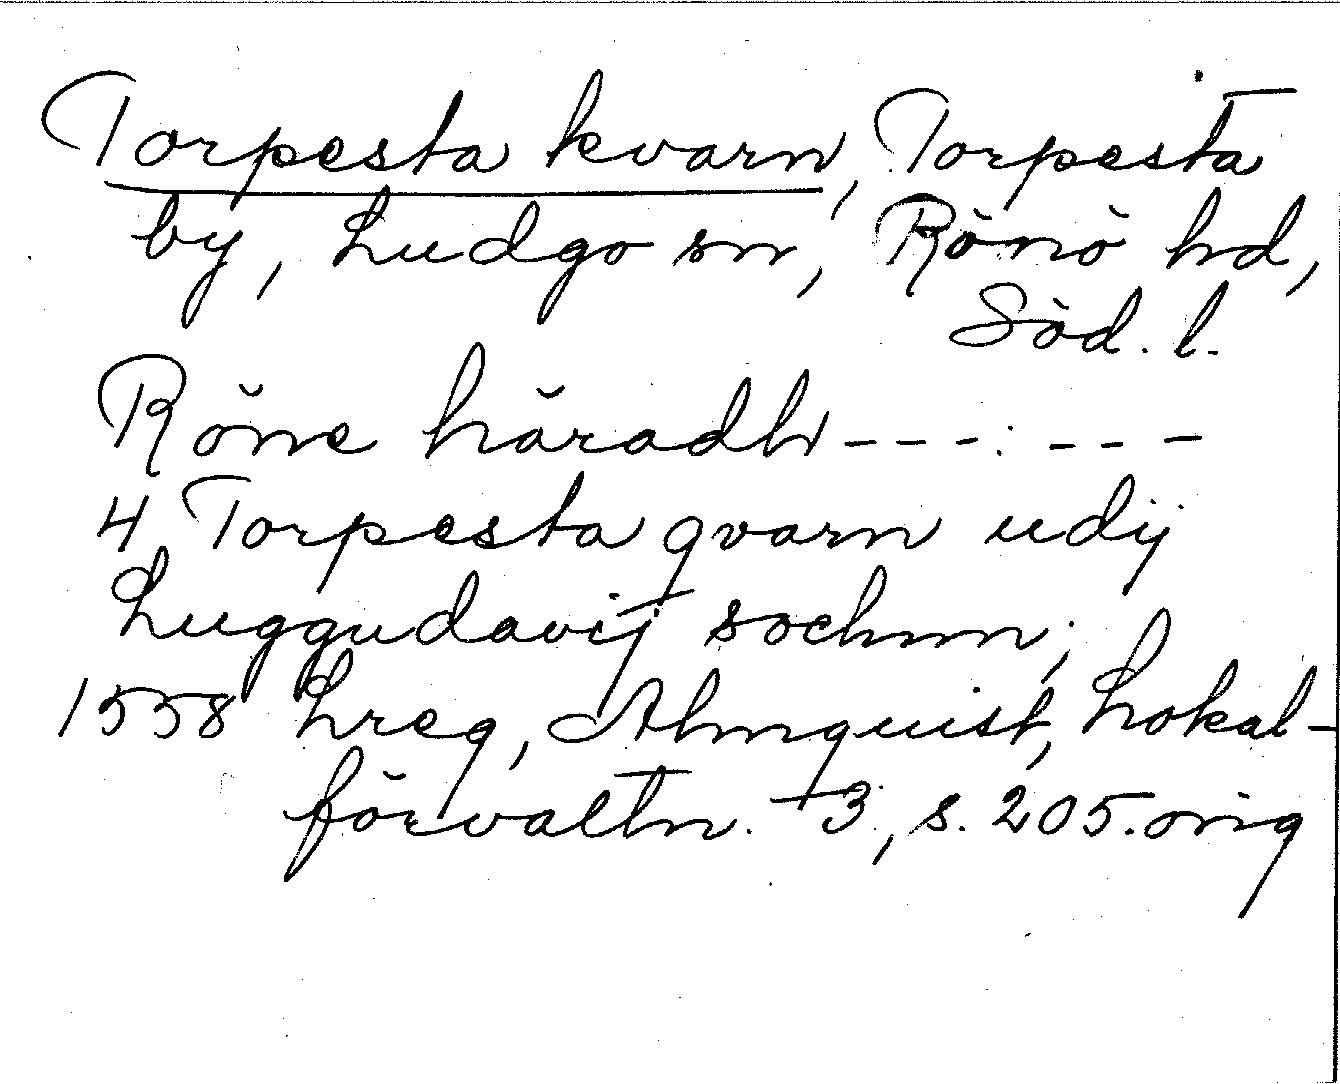 Torpesta kvarn, Torpesta
by, Ludgo sn, Rönö hd,
Söd. l.
Röne häradh - - - : - - -
4 Torpesta qvarn udij
Luggudavij sochnn;
1558 Lreg, Almquist, Lokal-
förvaltn. 3, s. 205. orig